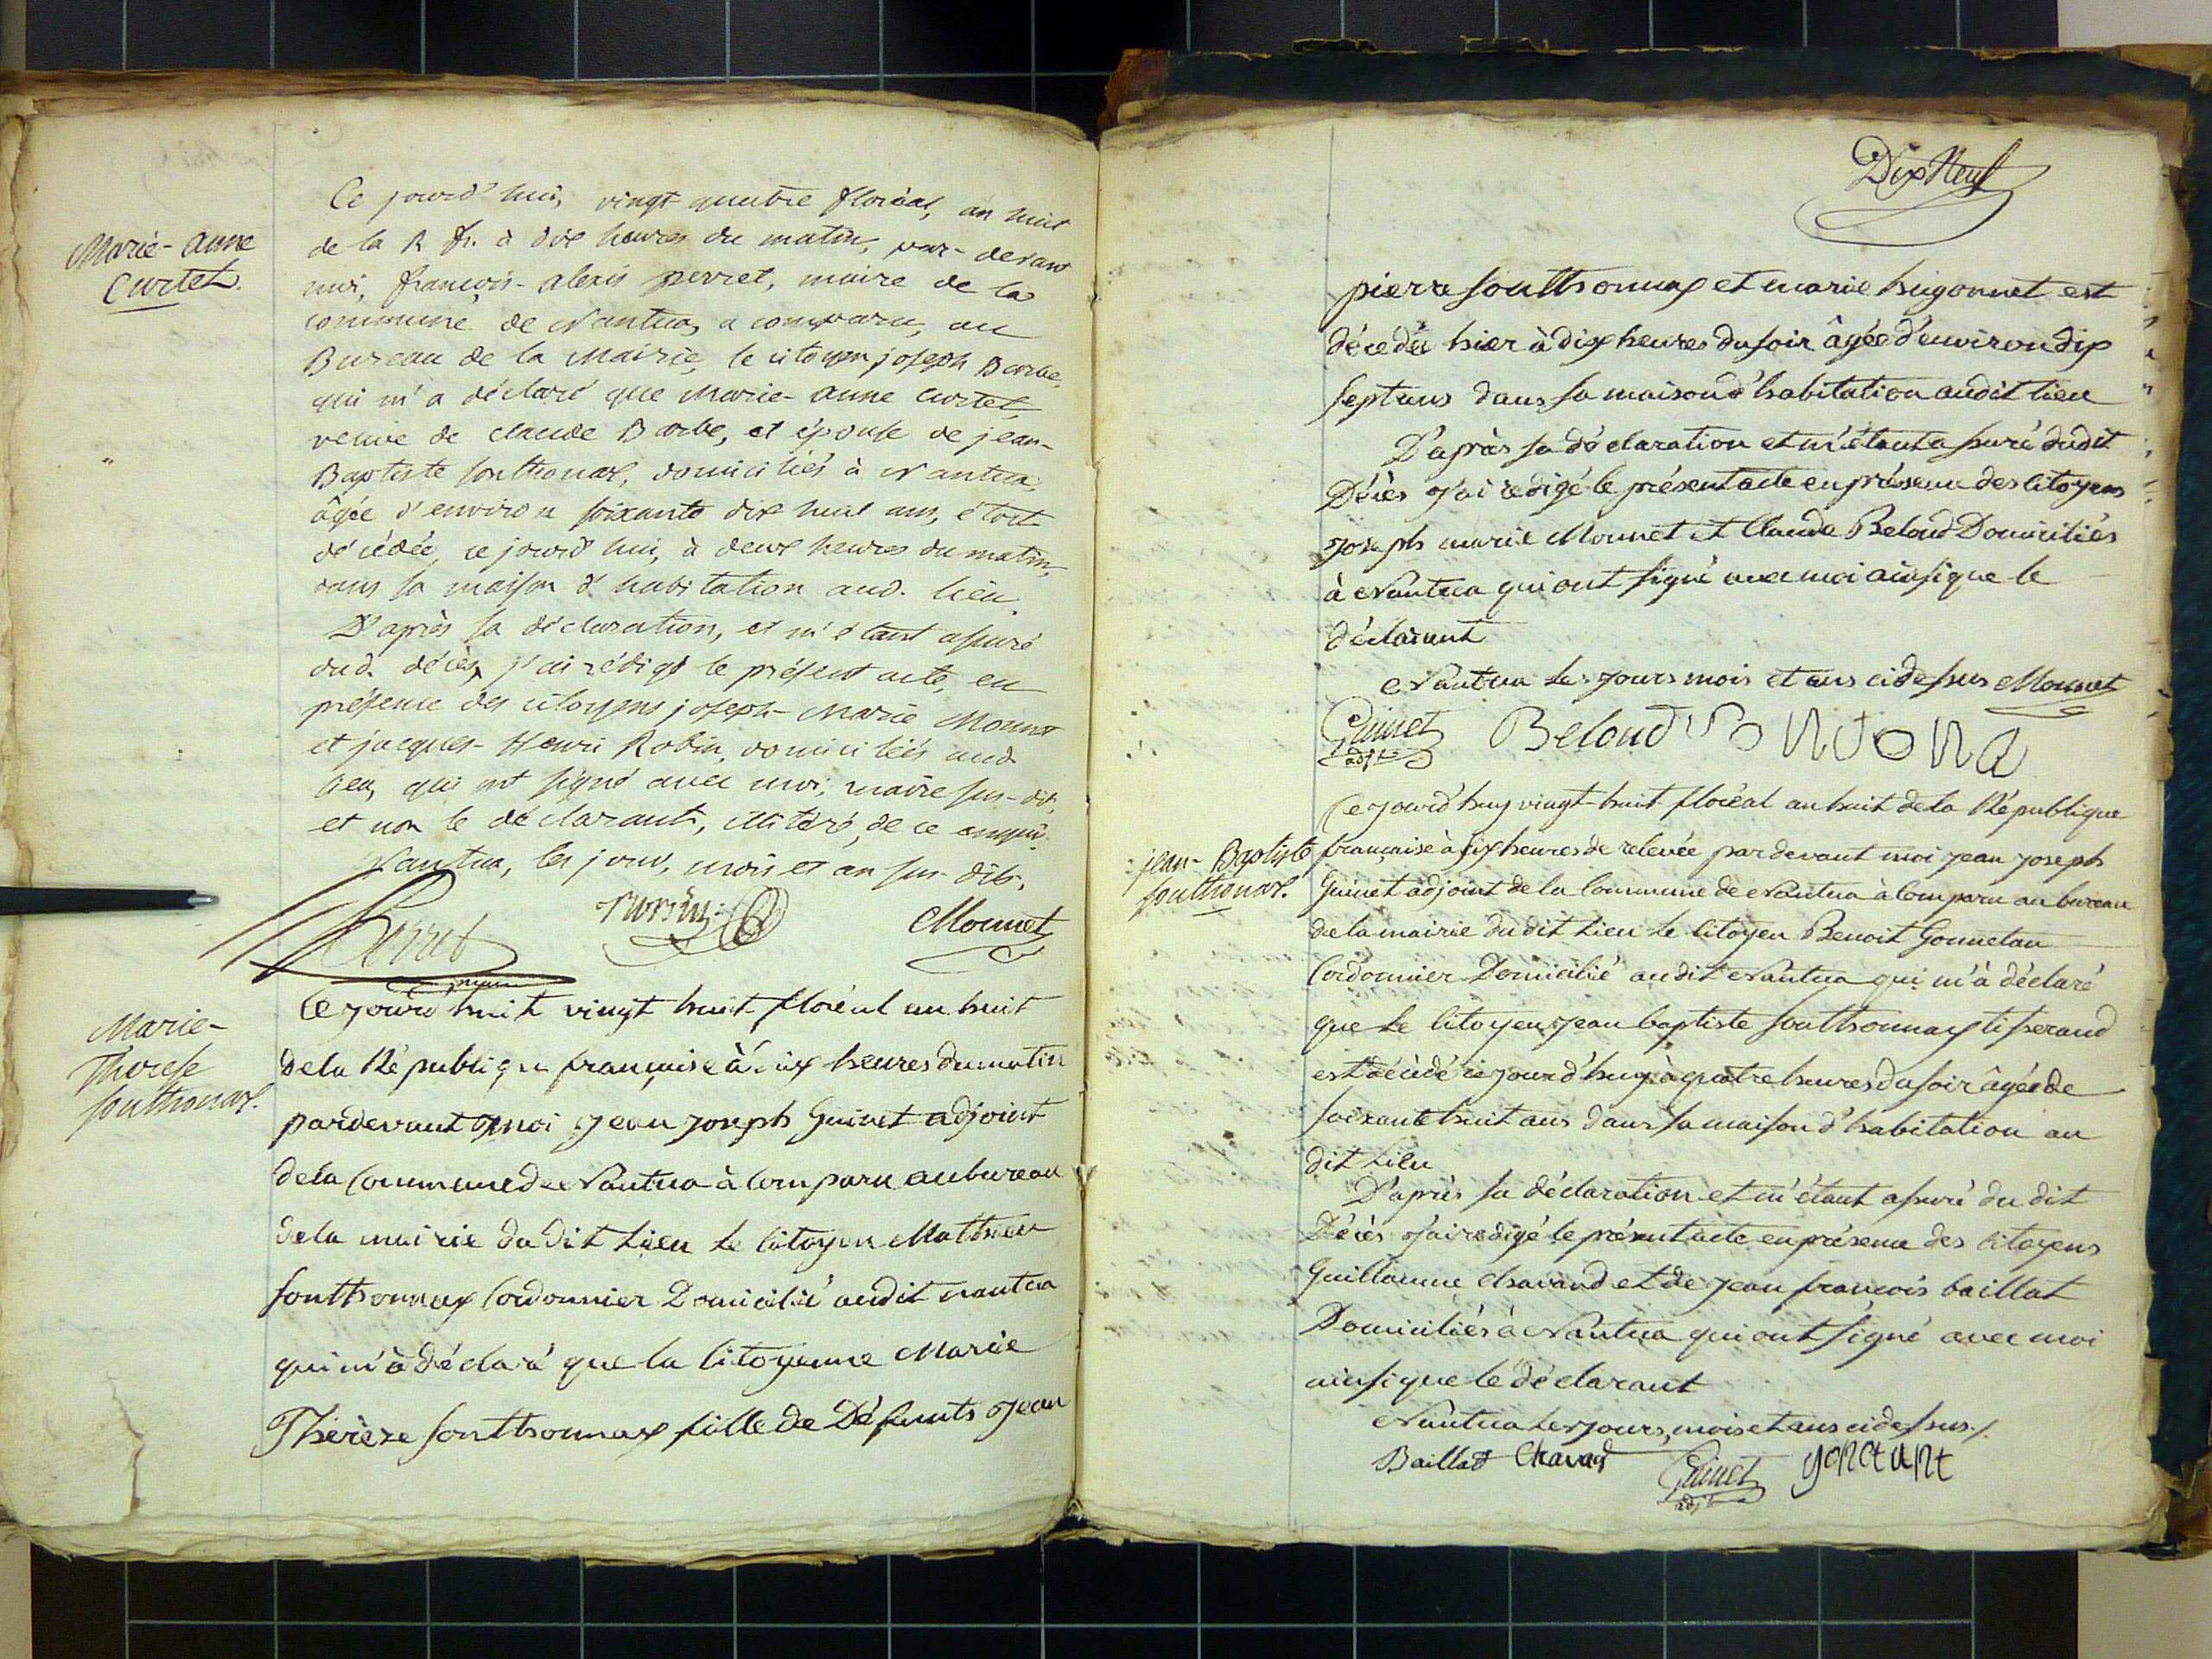 Marie-anne
Curtet.
Ce jourd'hui, vingt quatre floréal, an huit
de la R fr. à dix heures du matin, par-devant
moi, françois-alexis perret, maire de la
commune de Nantua, a comparu, au
Bureau de la Mairie, le citoyen joseph Barbe,
qui m'a déclaré que Marie-anne Curtet,
veuve de claude Barbe, et épouse de jean-
Baptiste Southonax, domiciliés à Nantua,
âgée d'environ soixante dix huit ans, étoit
décédée, ce jourd'hui, à deux heures du matin,
dans sa maison d'habitation aud. lieu.
D'après sa déclaration, et m'étant assuré
dud. décès, j'ai rédigé le présent acte, en
présence des citoyens joseph-Marie Monnet
et jacques-Henri Robin, domiciliés aud.
lieu, qui ont signé avec moi, maire sus-dit,
et non le déclarant, illitéré, de ce enquis.
Nantua, les jour, mois et an sus-dits.
Perret
Robin
Monnet
Marie-
Therese
southonax.
Ce jourd'huit vingt huit floréal an huit
de la République française à dix heures du matin
pardevant moi jean joseph Guinet adjoint
de la Commune de Nantua à Comparu au bureau
de la mairie du dit Lieu le Citoyen Mathieu
Southonnax Cordonnier Domicilié audit nantua
qui m'à déclaré que la Citoyenne Marie
Thérèze Southonnax fille de Défunts jean
Dix Neuf
pierre southonnax et marie hugonnet est
décedée hier à dix heures du soir âgée d'environ dix
sept ans dans sa maison d'habitation audit lieu
D'après sa déclaration et m'étant assuré dudit
Décès j'ai redigé le présent acte en présence des Citoyens
joseph marie Monnet et Claude Beloud Domiciliés
à Nantua qui ont signé avec moi ainsi que le
déclarant
Nantua les jours mois et ans cidessus Monnet
Guinet
adjt
Beloud
jean-Baptiste
southonax.
Ce jourd'huy vingt-huit floréal an huit de la République
française à six heures de relevée pardevant moi jean joseph
Guinet adjoint de la Commune de Nantua à Comparu au bureau
de la mairie du dit Lieu le Citoyen Benoit Gonnetan
Cordonnier Domicilié audit Nantua qui m'à déclaré
que le Citoyen jean baptiste southonnax tisserand
est décédé ce jourd'huy à quatre heures du soir âgé de
soixante huit ans dans sa maison d'habitation au
dit Lieu
D'après sa déclaration et m'étant assuré du dit
Décès j'ai redigé le présent acte en présence des Citoyens
Guillaume Chavand et de jean françois baillat
Domiciliés à Nantua qui ont signé avec moi
ainsi que le déclarant
Nantua les jours, mois et ans cidessus./.
Baillat Chavand
Guinet
adjt